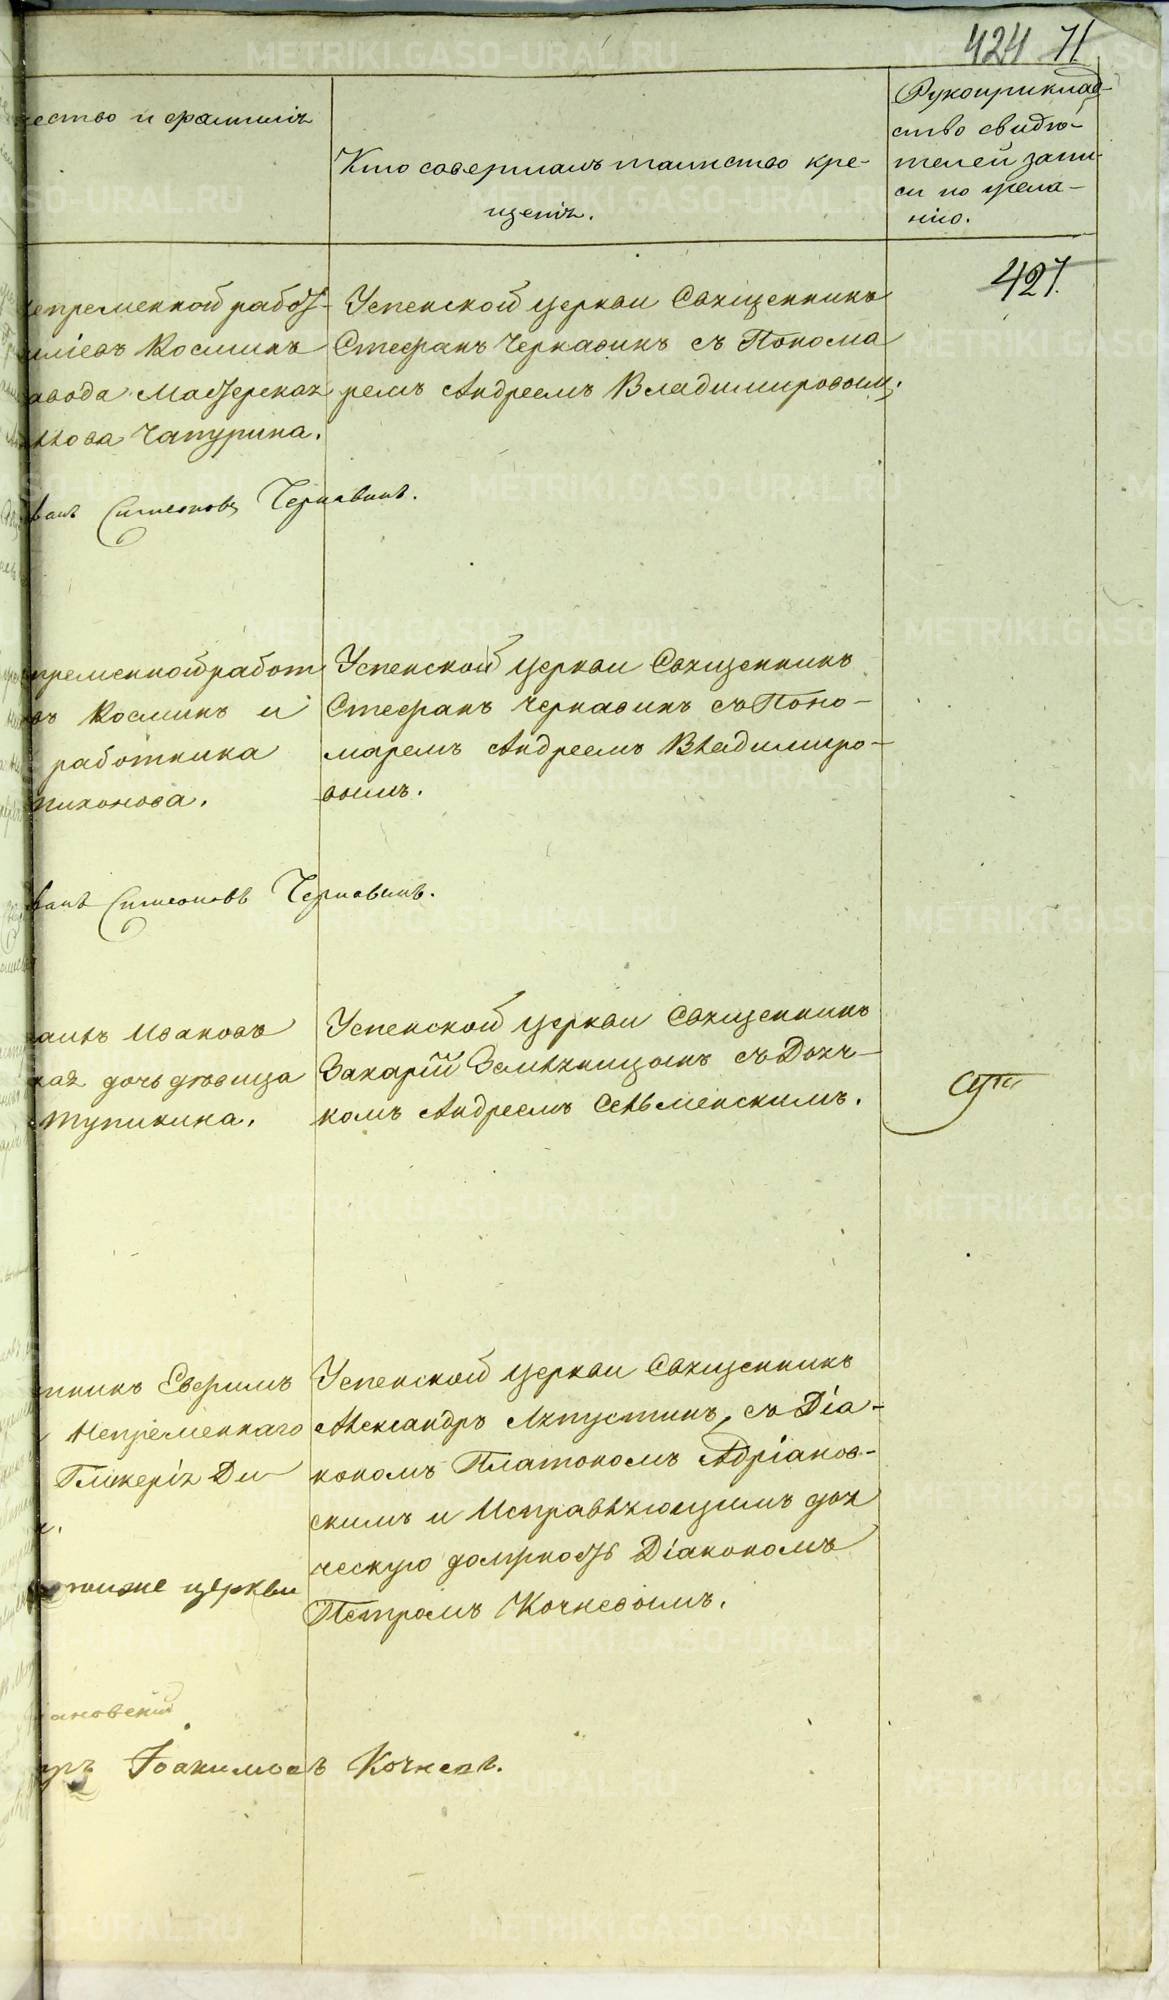 424 71
чество и фамилія
Кто совершалъ таинство кре-
щенія.
Рукоприклад-
ство свидѣ-
телей запи-
си по жела-
нію.
427.
епременной работ-
иліевъ Косминъ
авода Мастерская
Чапурина.
Успенской церкви Священникъ
Стефанъ Чернавинъ съ Понома
ремъ Андреемъ Владимировым.
ванъ Симеоновъ Чернавинъ.
пременной работ
въ Косминъ и
работника
тихонова.
Успенской церкви Священникъ
Стефанъ Чернавинъ съ Поно-
маремъ Андреемъ Владимиро-
вымъ.
ванъ Симеоновъ Чернавинъ.
Ивановъ
кая дочь дѣвица
Тупикина.
Успенской церкви Священникъ
Захарій Земляницынъ съ Дьяч-
комъ Андреемъ Сельменскимъ.
тникъ Евфимъ
Непременнаго
Гликерія Ди
Успенской церкви Священникъ
Александръ Ляпустинъ, съ Діа-
кономъ Платономъ Адріанов-
скимъ и Исправляющимъ дья
ческую должность Діакономъ
Петромъ Кочневымъ.
тойже церкви
ановскій
тръ Іоакимовъ Кочневъ.
METRIKI.GASO-URAL.RU